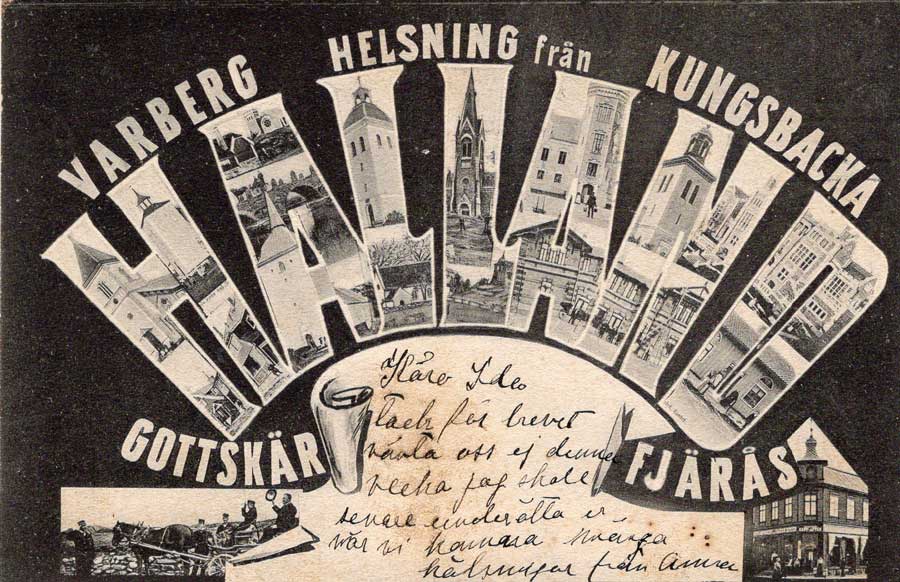 HELSNING från
VARBERG
KUNGSBACKA
HALLAND
GOTTSKÄR
FJÄRÅS
Käre Ide
tack för brevet
vänta oss ej denna
vecka jag skale
senare underätta er
när vi komma många
hälsningar från Anna